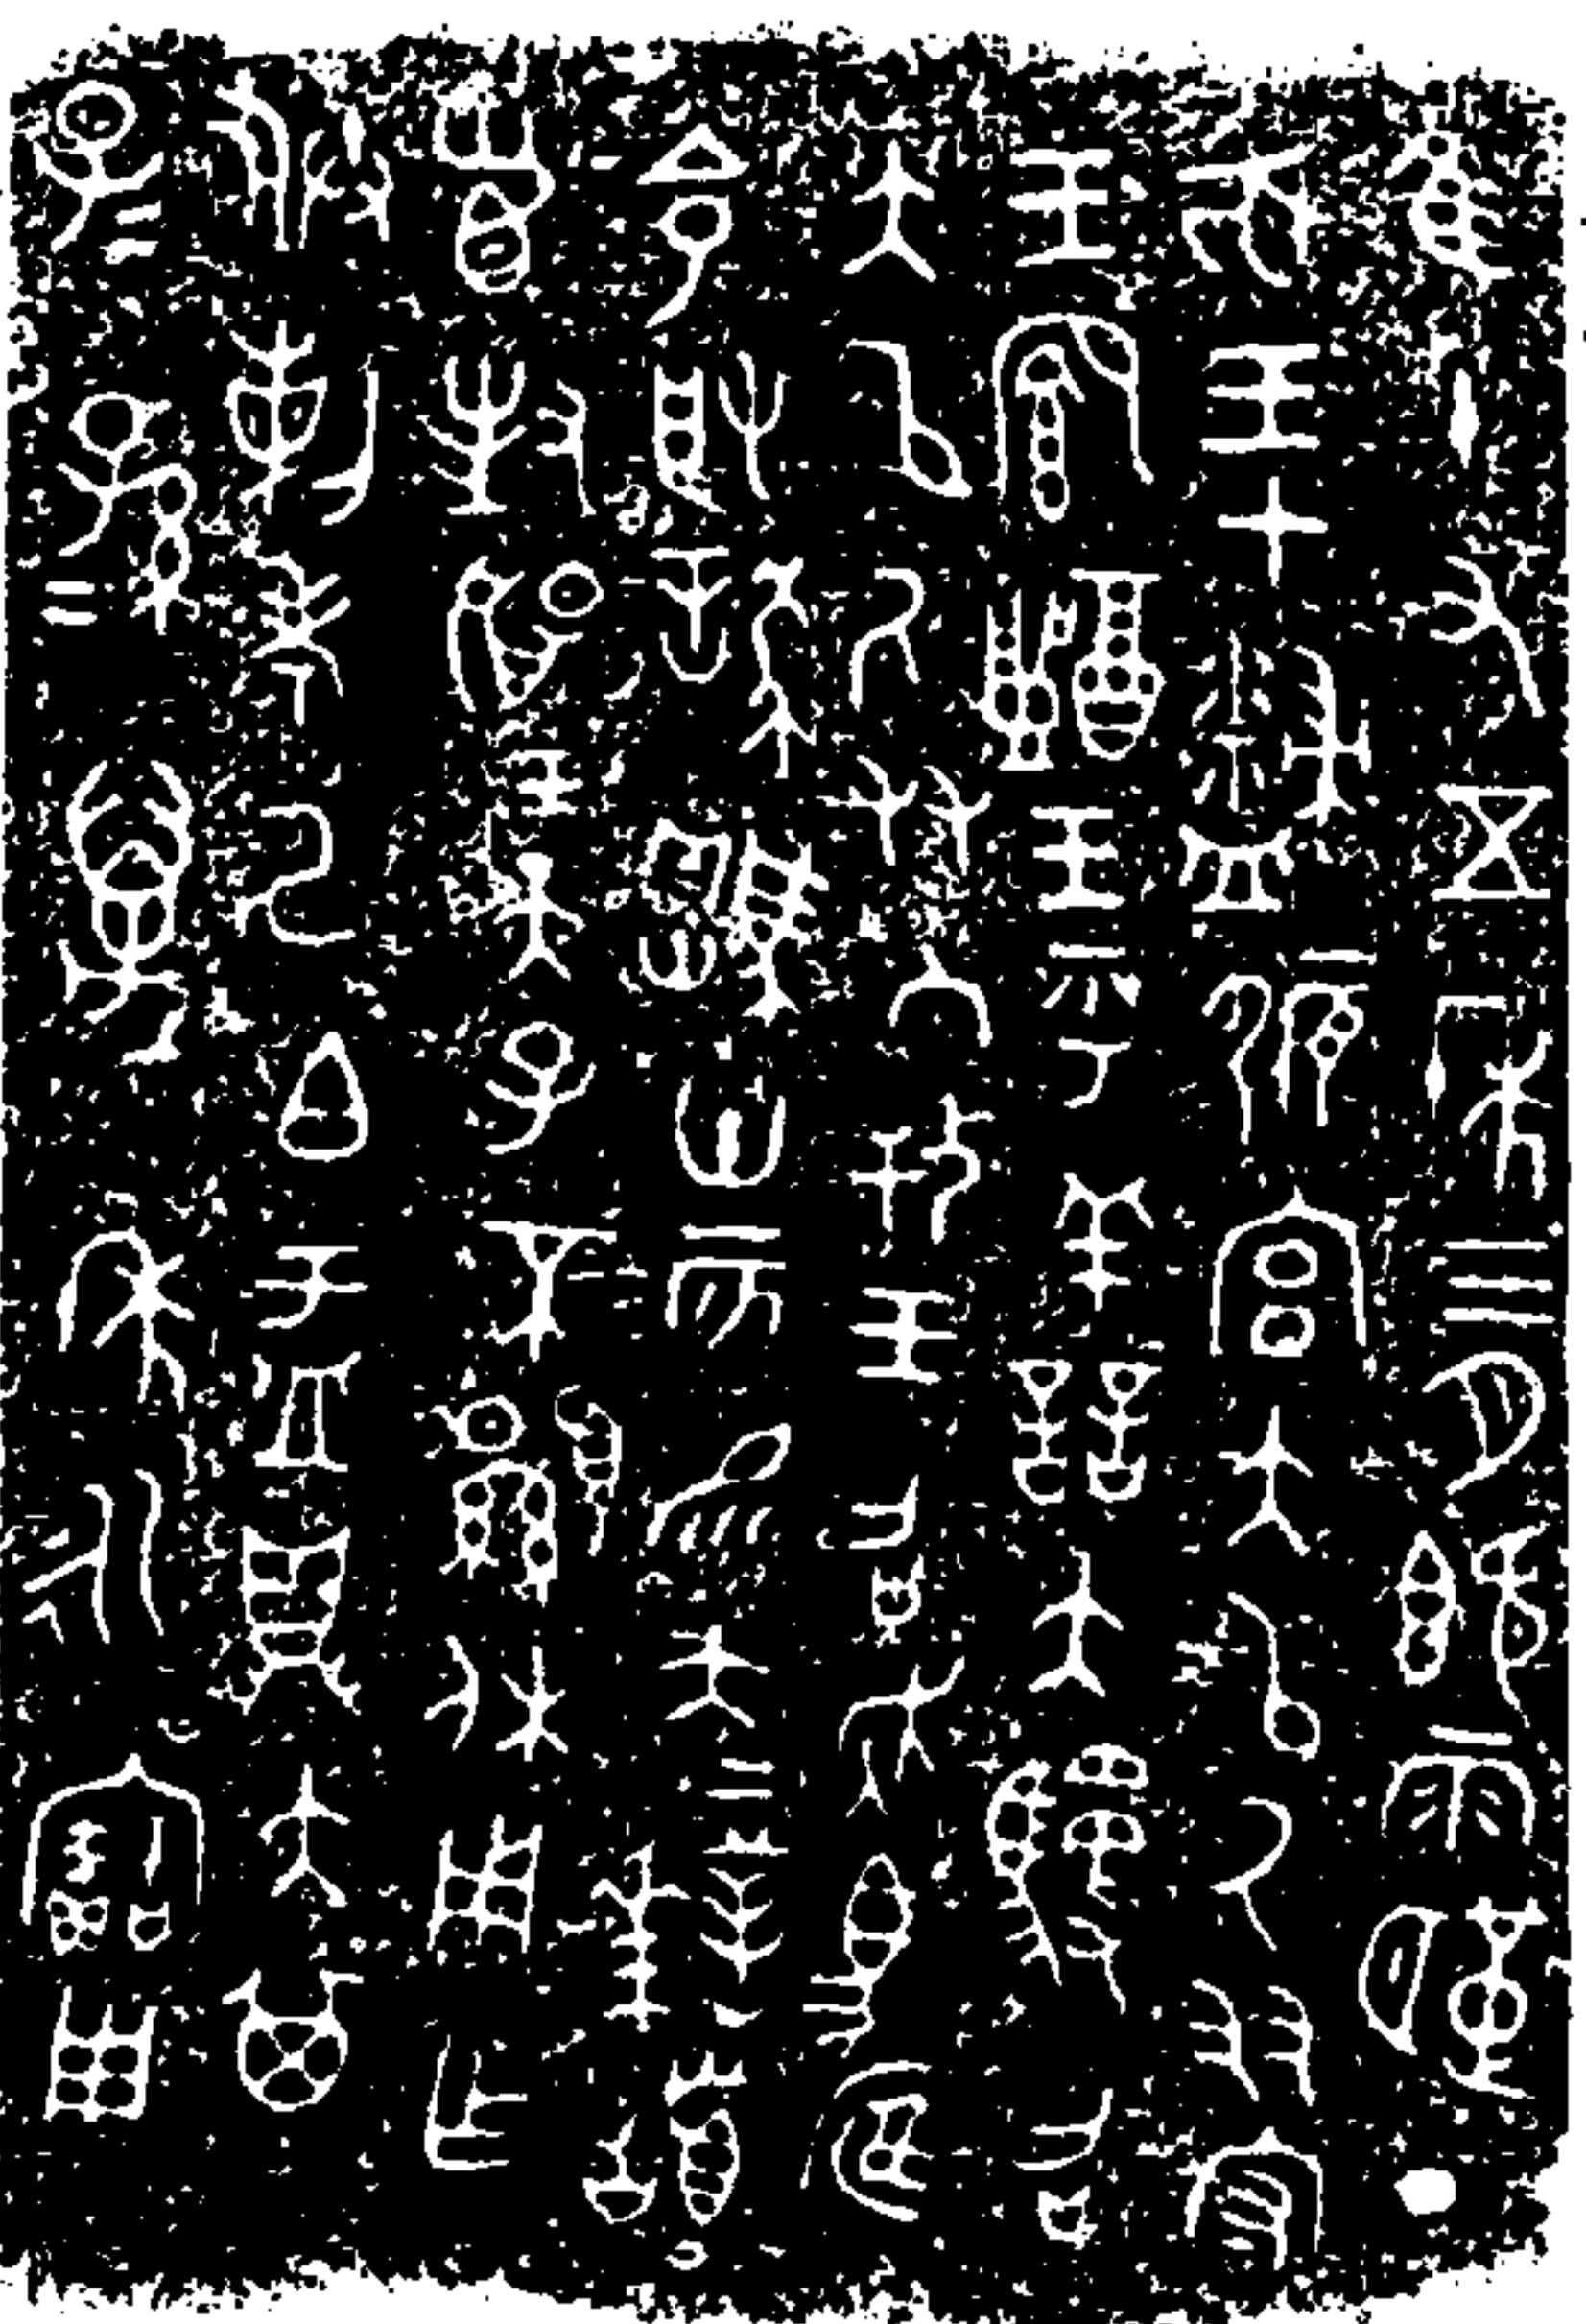 隹十又五年三月既霸丁
亥王才𥿒𠊱宮大㠯厥友守
王鄉醴王乎善大騣召
大㠯厥友入攼王召走馬雁
令取誰騧卅二匹易大=拜𩒨
首對揚天子不顯休用乍
朕剌考己白盂鼎大其
子=孫=邁年永寶用